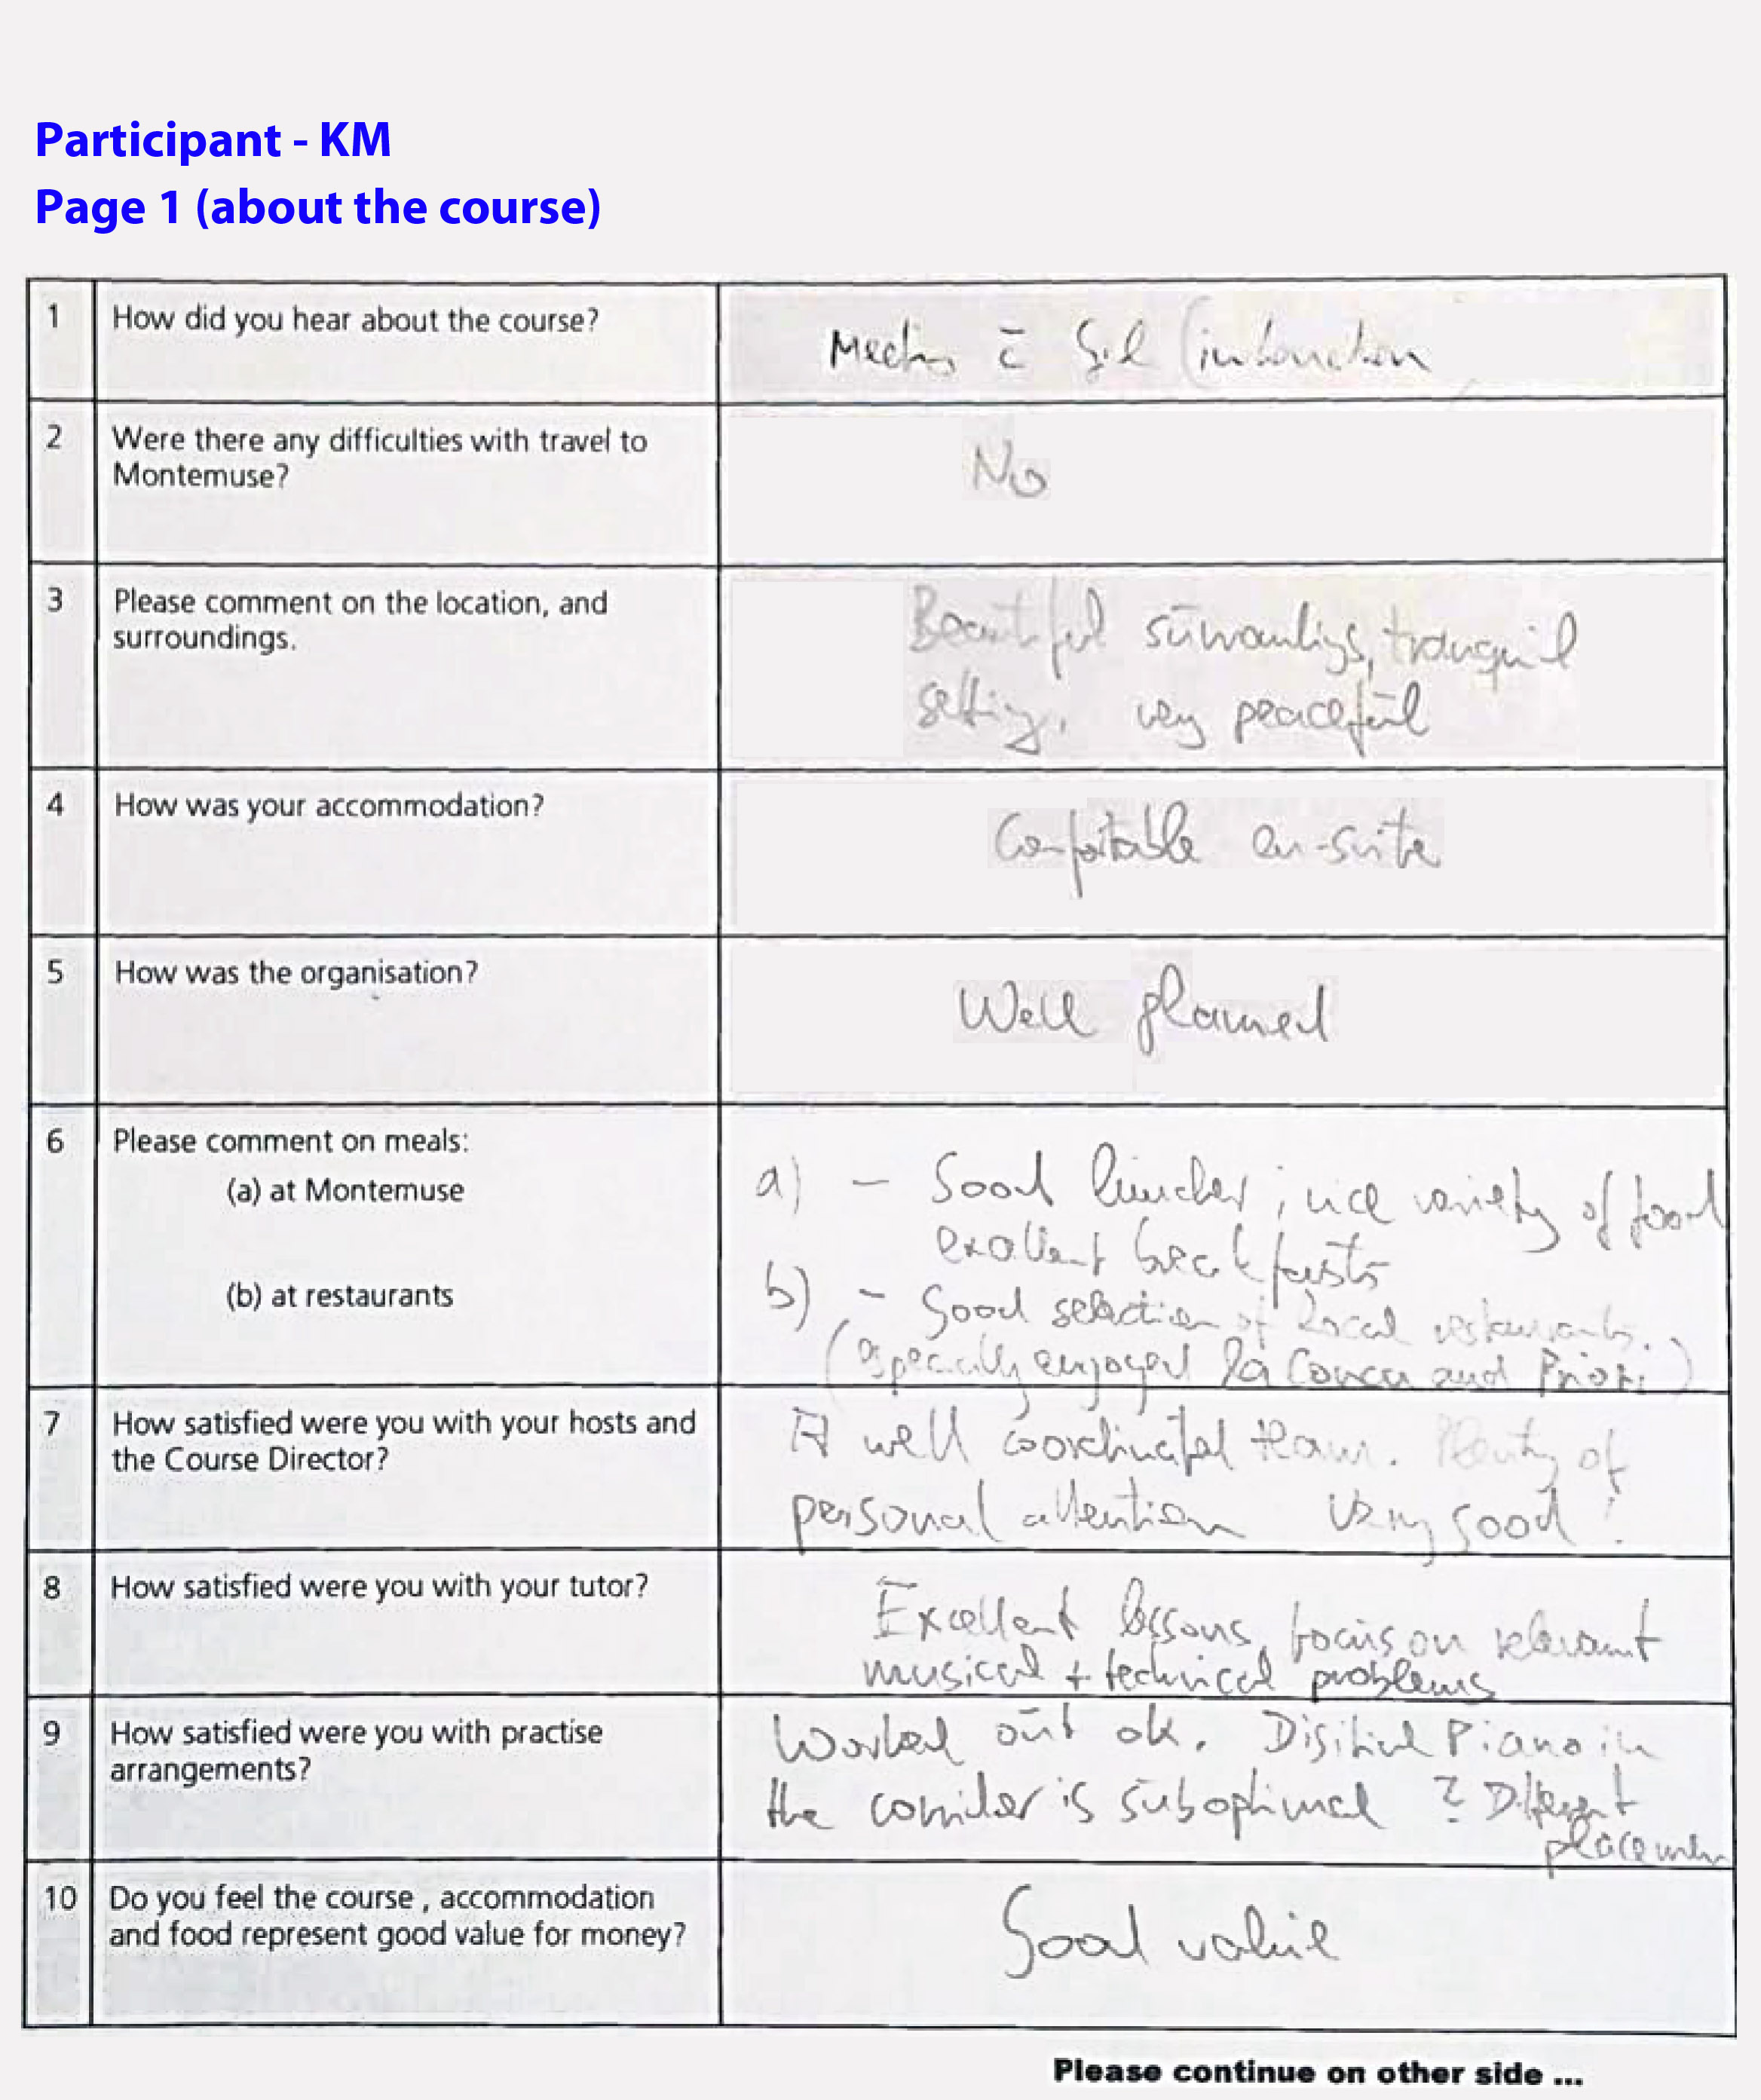 Participant - KM
Page 1 (about the course)
1 How did you hear about the course?
c̄
2 Were there any difficulties with travel to
Montemuse?
No
3 Please comment on the location, and
surroundings.
Beautiful surroundings, tranquil
setting, very peaceful
4 How was your accommodation?
Comfortable en-suite
5 How was the organisation?
Well planned
6 Please comment on meals:
(a) at Montemuse
(b) at restaurants
a) – Good lunches, nice variety of food
excellent breakfasts
b) – Good selection of local restaurants.
(especially enjoyed La Conca and Priori)
7 How satisfied were you with your hosts and
the Course Director?
A well coordinated team. Plenty of
personal attention Very good!
8 How satisfied were you with your tutor?
Excellent lessons, focus on relevant
musical + technical problems
9 How satisfied were you with practise
arrangements?
Worked out ok. Digital Piano in
the corridor is suboptimal ? Different
placemen
10 Do you feel the course , accommodation
and food represent good value for money?
Good value
Please continue on other side ...